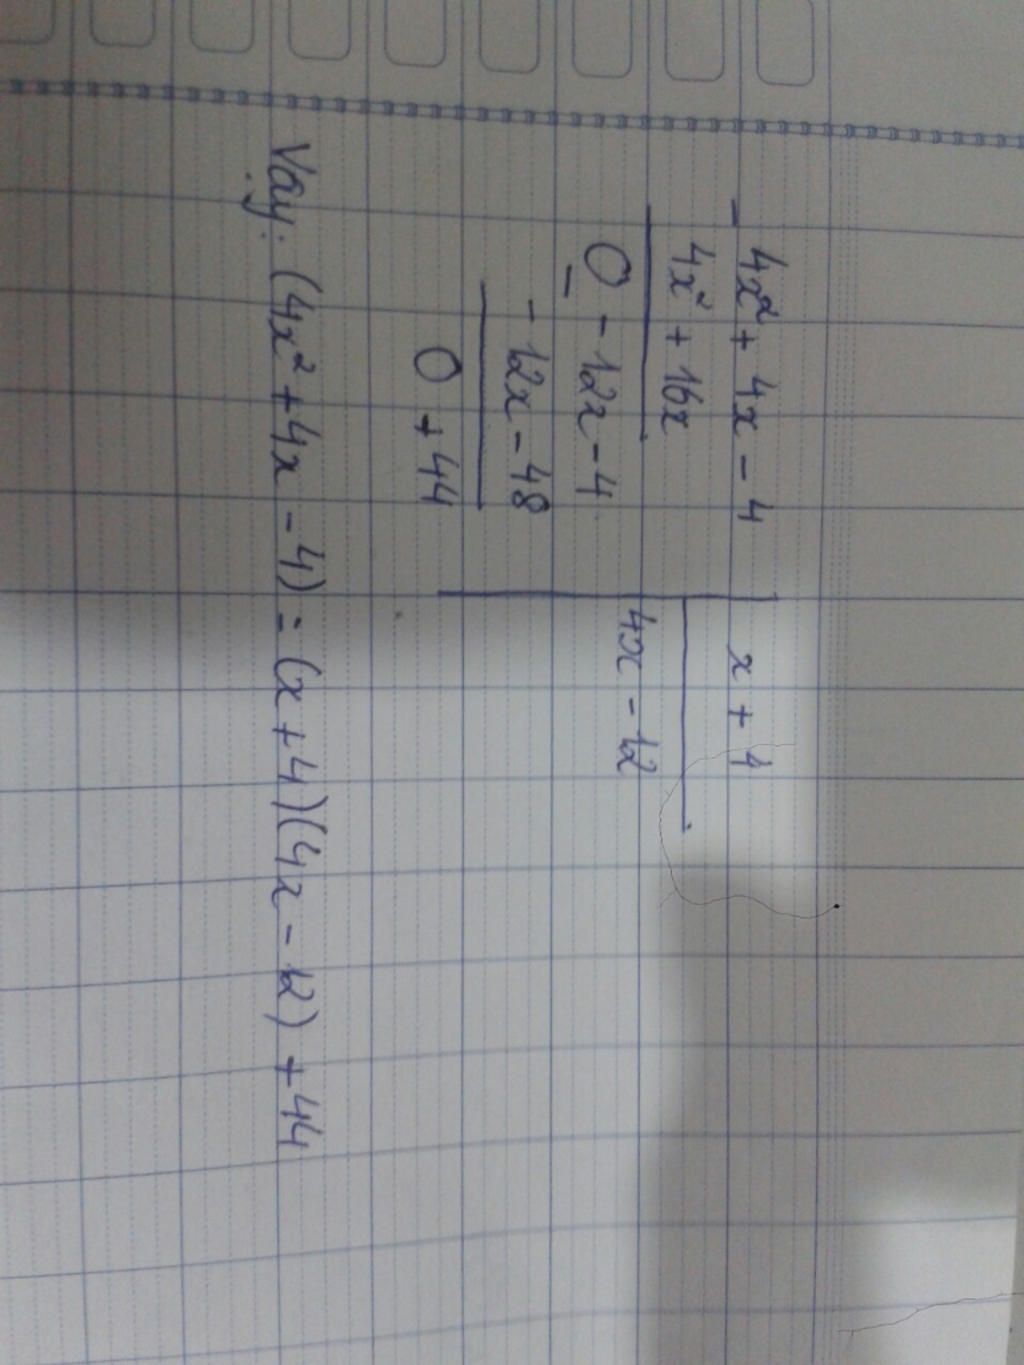 4x² + 4x - 4 x + 4
-
4x² + 16x
4x - 12
0 - 12x - 4
-
- 12x - 48
0 + 44
Vậy: (4x² + 4x - 4) = (x + 4)(4x - 12) + 44